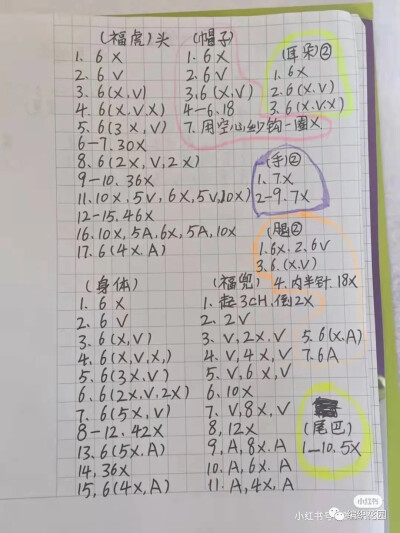 (福虎)头
1. 6X
2. 6V
3. 6(X,V)
4. 6(X.V.X)
5. 6(3X,V)
6-7.30X
8. 6(2X,V,2X)
9-10.36X
11.10X,5V,6X,5V,10X)
12-15.46X
16.10X,5A,6X,5A,10X
17.6(4X.A)
(帽子)
1. 6X
2. 6V
3.6(X,V)
4-6.18
7.用空心纱钩一圈X
(耳朵)②
1.6X
2.6(X.V)
3.6(X.V.X)
(手)②
1.7X
2-9.7X
(腿)②
1.6X.2.6V
3.6.(X.V)
4.内半针.18X
5.6(X.A)
7.6A
(身体)
1. 6X
2. 6V
3.6(X,V)
4.6(X.V.X,)
5.6(3X.V)
6.6(2X,V,2X)
7.6(5X,V)
8-12.42X
13.6(5X.A)
14.36X
15,6(4X,A)
(福兜)
1.起3CH.倒2X
2. 2V
3. V,2X,V
4. V,4X,V
5. V,6X,V
6.10X
7. V,8X,V
8,12X
9,A,8X.A
10.A,6X.A
11.A,4X,A
(尾巴)
1-10.5X
小红书
小红书号